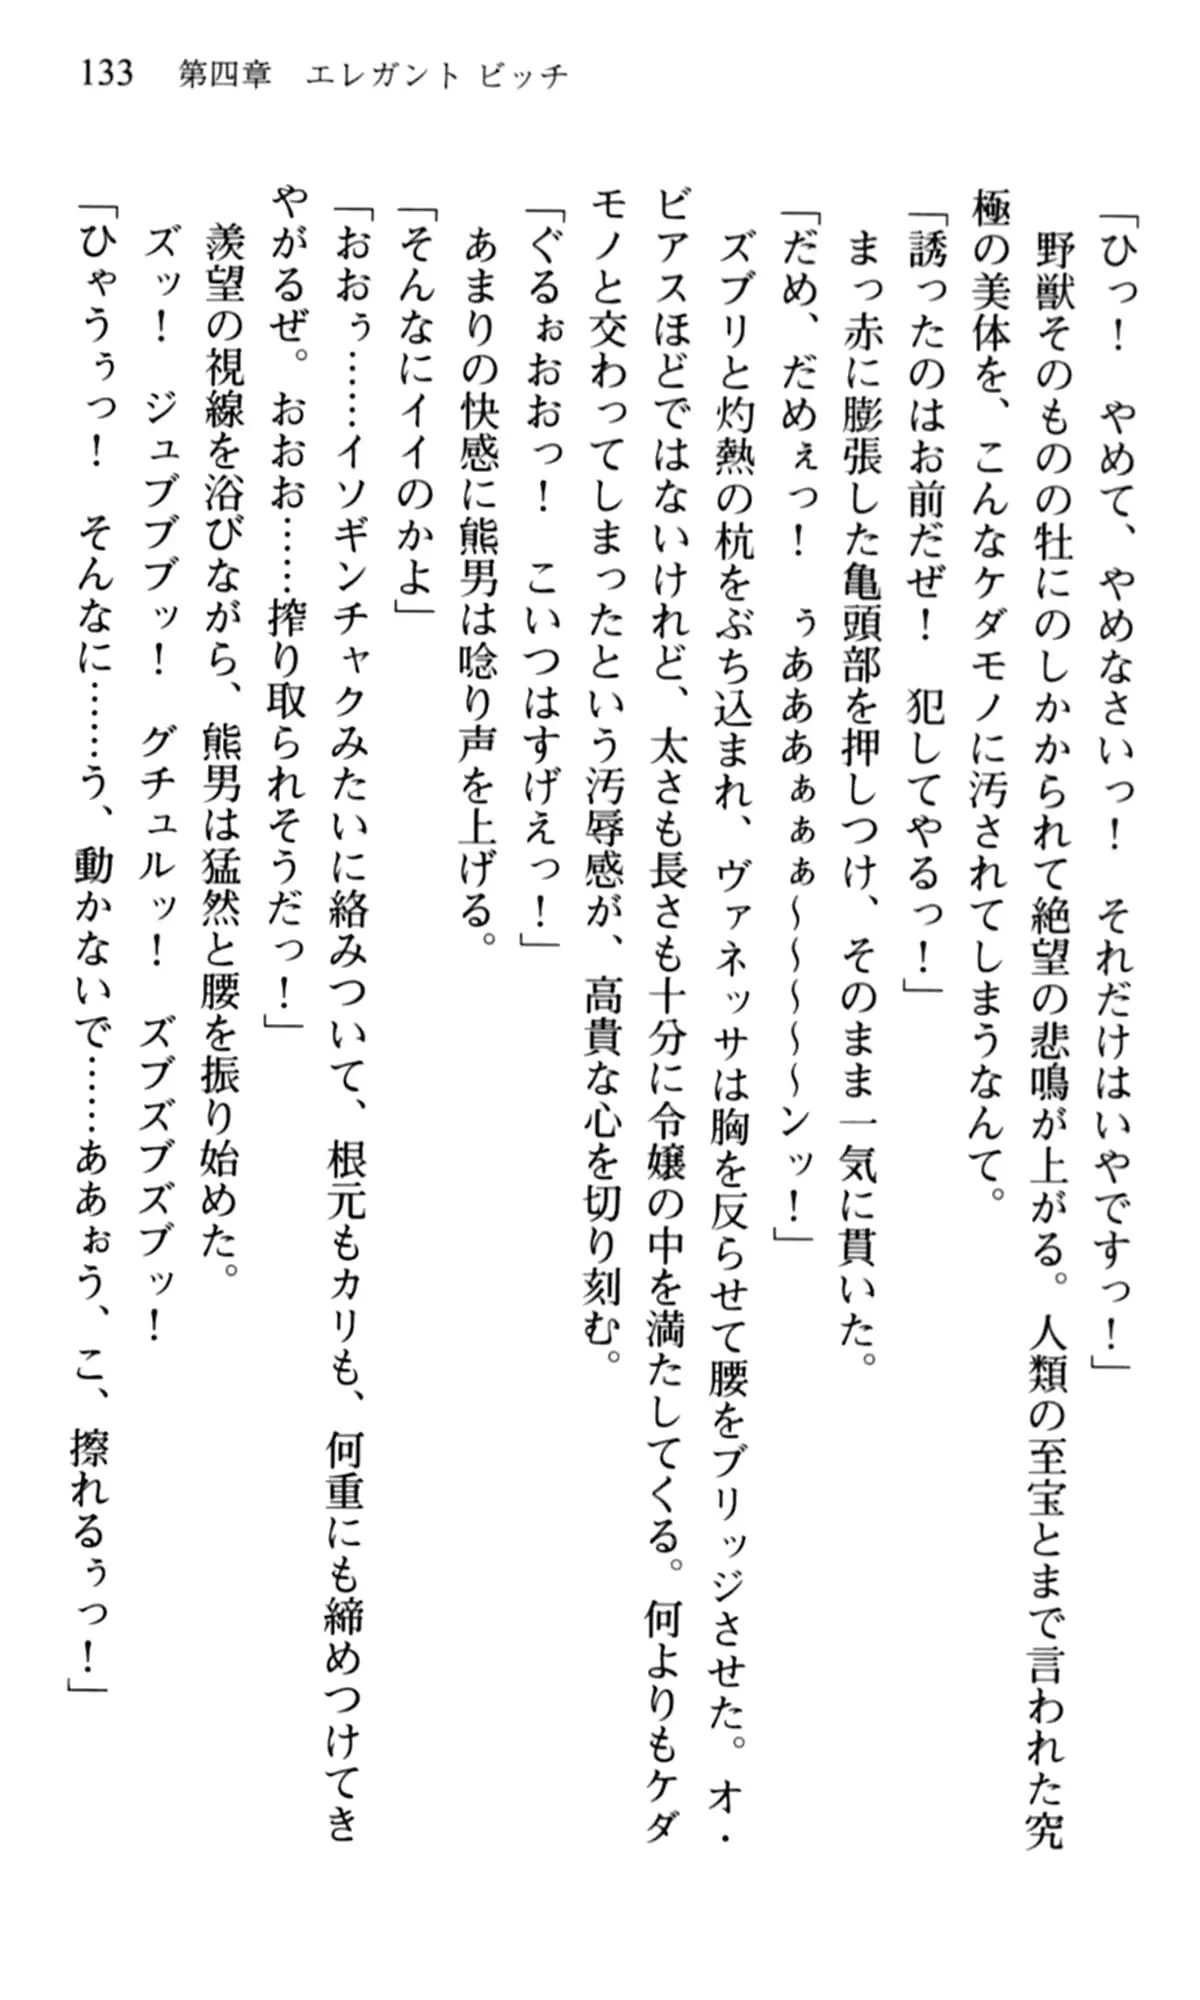 133 第四章 エレガント ビッチ
「ひっ！　やめて、やめなさいっ！　それだけはいやですっ！」
野獣そのものの牡にのしかかられて絶望の悲鳴が上がる。人類の至宝とまで言われた究
極の美体を、こんなケダモノに汚されてしまうなんて。
「誘ったのはお前だぜ！　犯してやるっ！」
まっ赤に膨張した亀頭部を押しつけ、そのまま一気に貫いた。
「だめ、だめぇっ！　ぅあああぁぁぁ～～～～～ンッ！」
ズブリと灼熱の杭をぶち込まれ、ヴァネッサは胸を反らせて腰をブリッジさせた。オ・
ビアスほどではないけれど、太さも長さも十分に令嬢の中を満たしてくる。何よりもケダ
モノと交わってしまったという汚辱感が、高貴な心を切り刻む。
「ぐるぉおおっ！　こいつはすげえっ！」
あまりの快感に熊男は唸り声を上げる。
「そんなにイイのかよ」
「おおぅ……イソギンチャクみたいに絡みついて、根元もカリも、何重にも締めつけてき
やがるぜ。おおお……搾り取られそうだっ！」
羨望の視線を浴びながら、熊男は猛然と腰を振り始めた。
ズッ！　ジュブブブッ！　グチュルッ！　ズブズブズブッ！
「ひゃうぅっ！　そんなに……う、動かないで……ああぉう、こ、擦れるぅっ！」